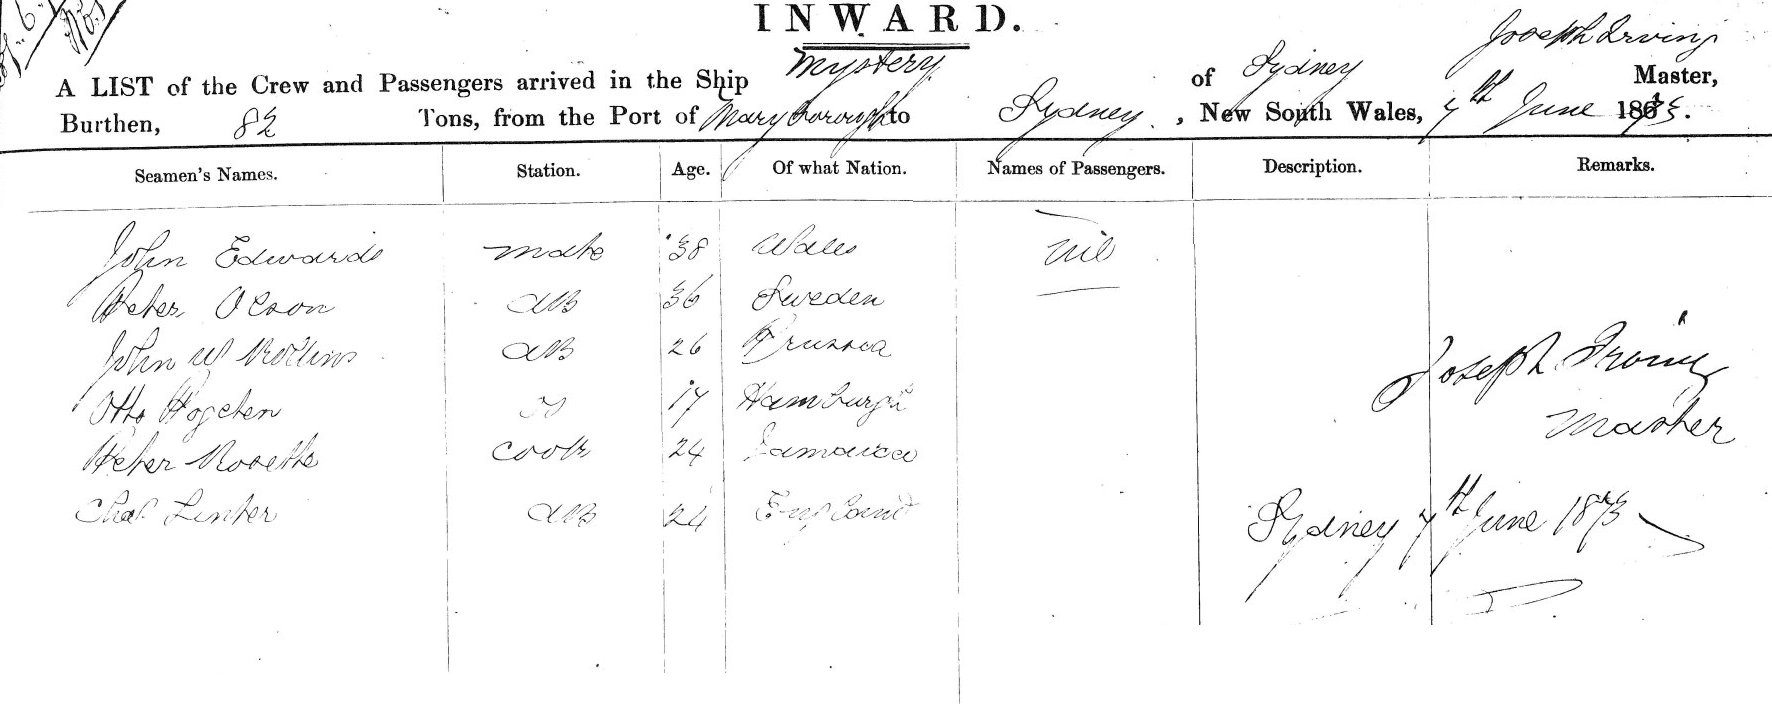 INWARD.
Joseph Irving
A LIST of the Crew and Passengers arrived in the Ship Mystery of Sydney Master,
Burthen, 82 Tons, from the Port of Maryborough to Sydney, New South Wales, 7th June 1873.
Seamen's Names. Station. Age. Of what Nation. Names of Passengers. Description. Remarks.
John Edwards mate 38 Wales Nil
Peter Olson AB 36 Sweden
John W AB 26 Prussia
Otto 17 Hamburgh
Joseph Irving
Master
Peter Rosette Cook 24 Jamaica
Chas Linter AB 24 England
Sydney 7th June 1873